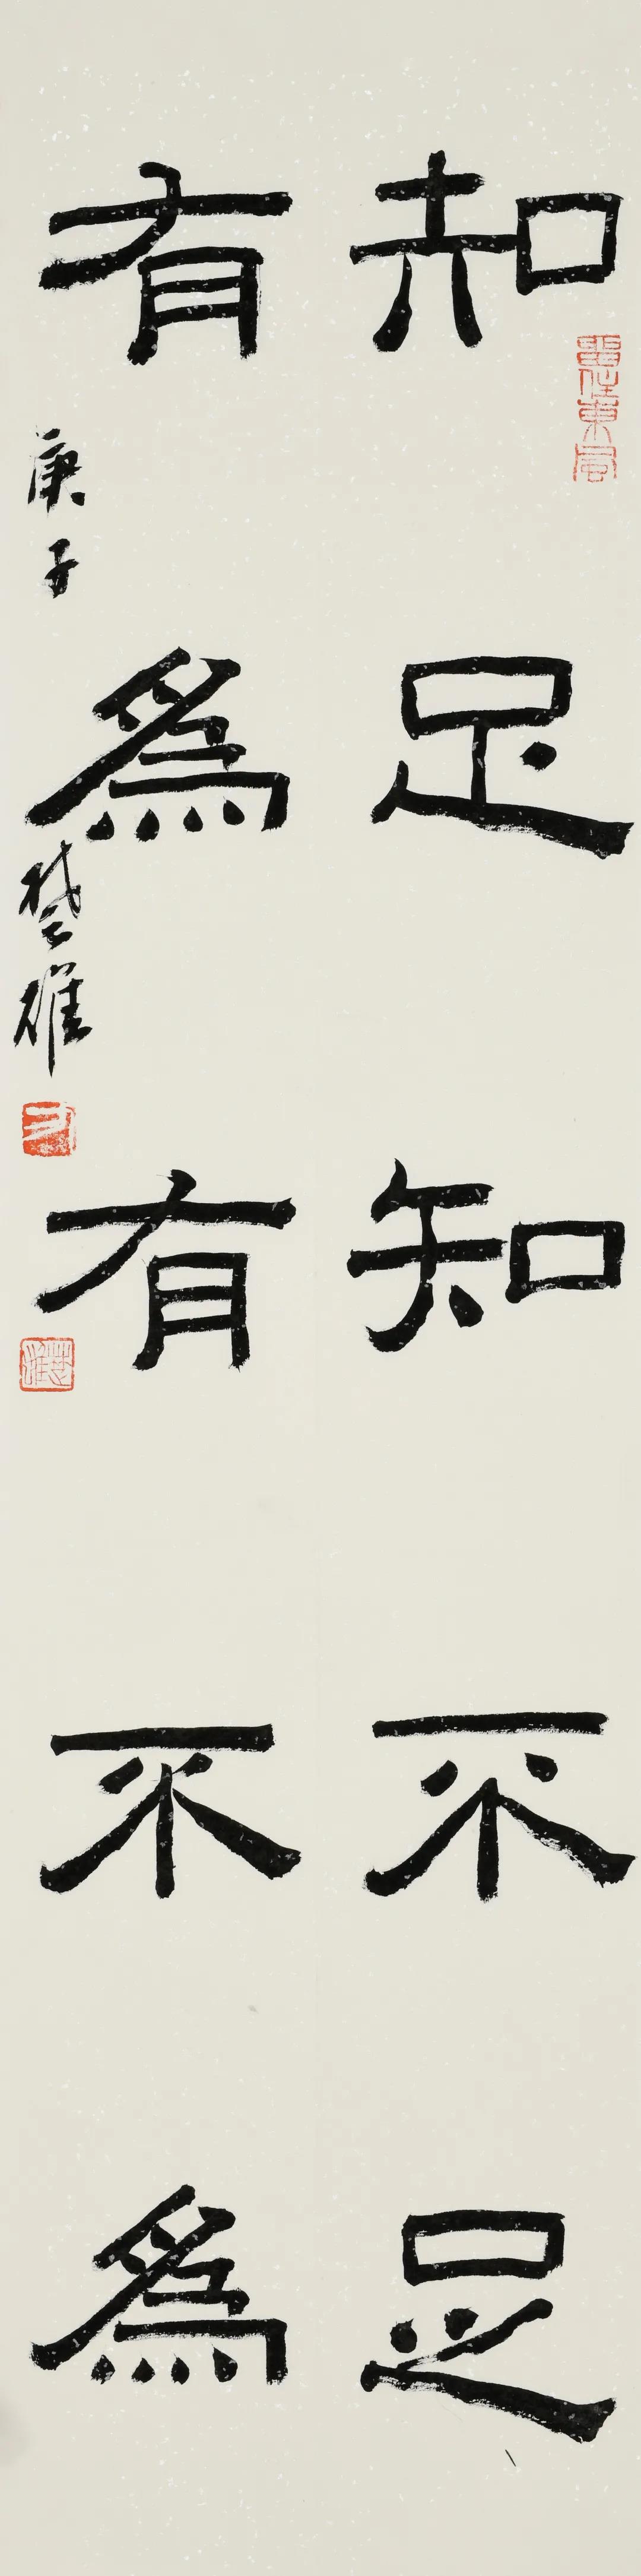 知足知不足
有為有不為
庚子 楚雄